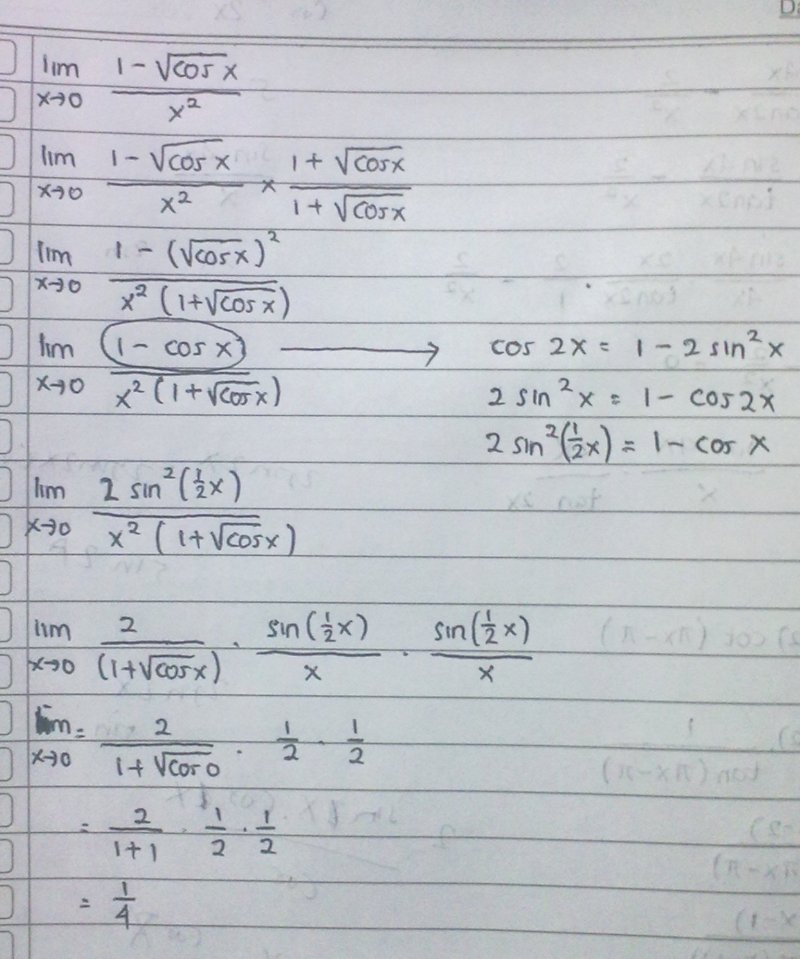 lim x→0 (1 - √cos x) / x²
lim x→0 (1 - √cos x) / x² × (1 + √cos x) / (1 + √cos x)
lim x→0 (1 - (√cos x)²) / (x² (1 + √cos x))
lim x→0 (1 - cos x) / (x² (1 + √cos x)) → cos 2x = 1 - 2 sin² x
2 sin² x = 1 - cos 2x
2 sin² (½x) = 1 - cos x
lim x→0 2 sin² (½x) / (x² (1 + √cos x))
lim x→0 2 / (1 + √cos x) · sin(½x) / x · sin(½x) / x
lim x→0 = 2 / (1 + √cos 0) · ½ · ½
= 2 / (1 + 1) · ½ · ½
= ¼